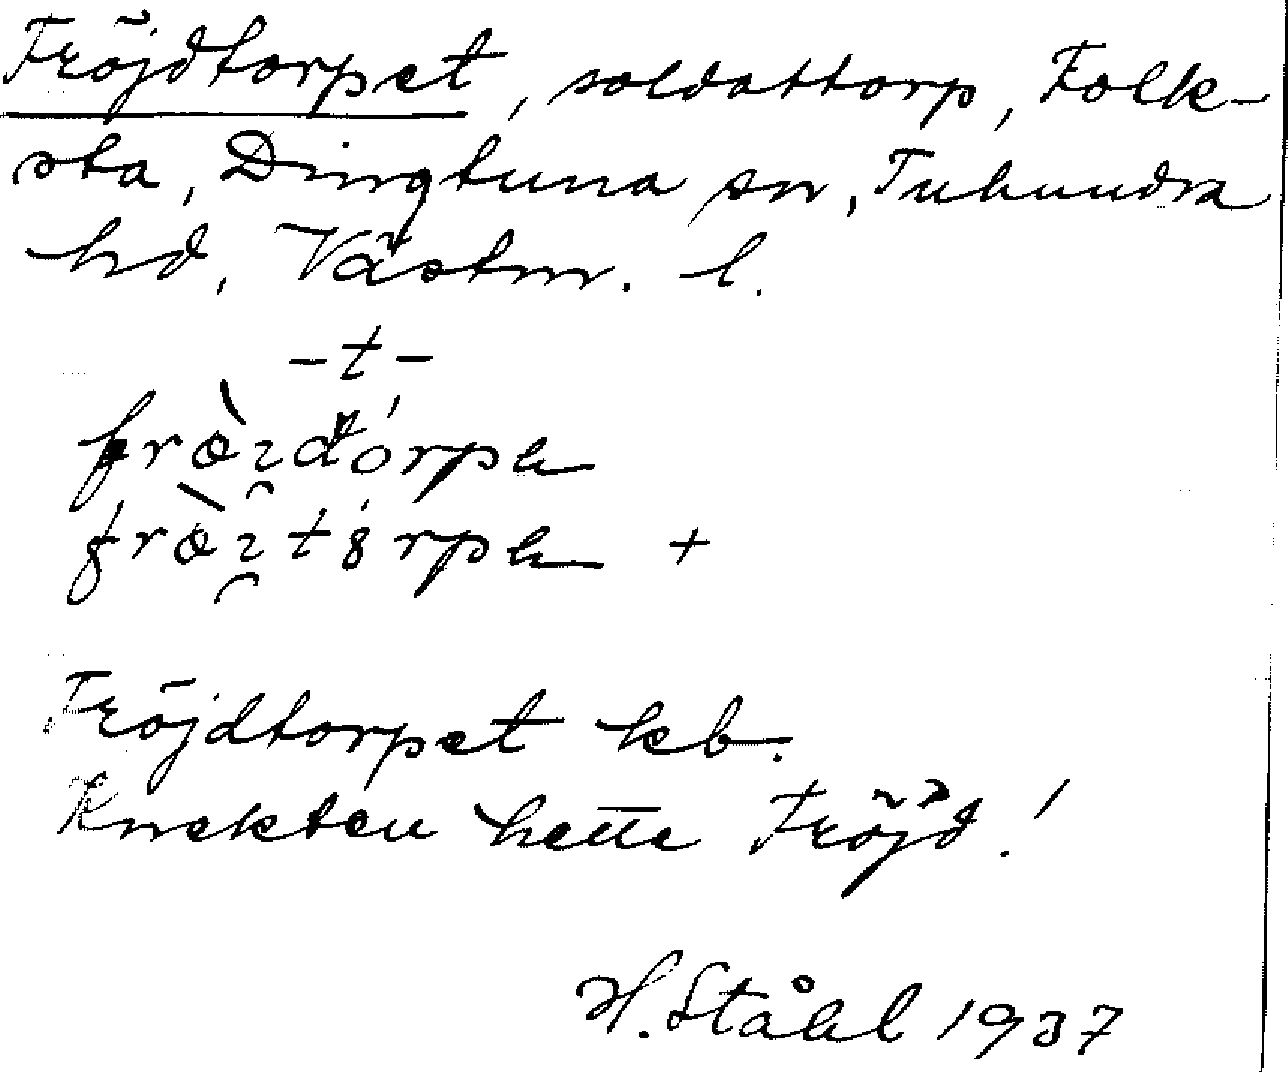 Fröjdtorpet, soldattorp, Folk-
sta, Dingtuna sn, Tuhundra
hd, Västm. l.
-t-
Fröjdtorpet kb.
Knekten hette Fröjd!
H. Ståhl 1937